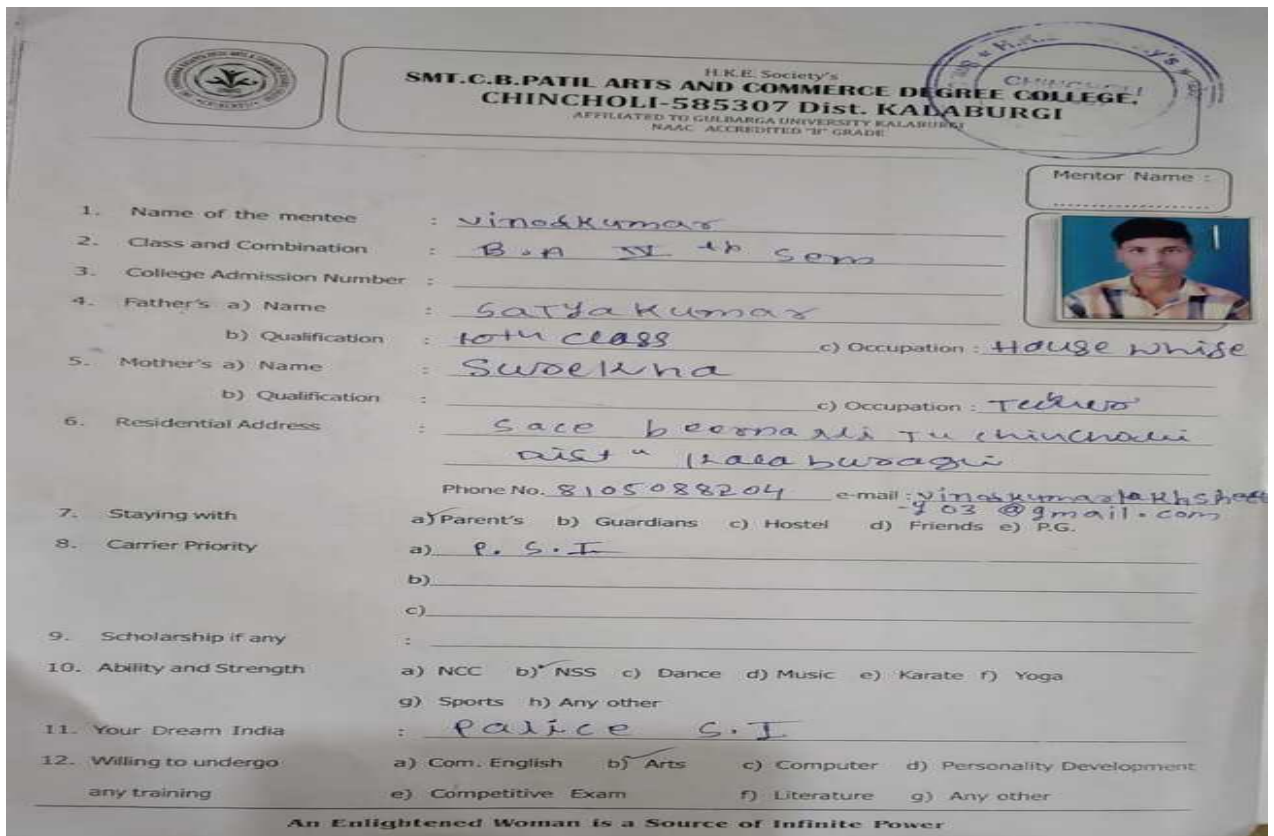 H.K.E. Society's
SMT.C.B.PATIL ARTS AND COMMERCE DEGREE COLLEGE,
CHINCHOLI-585307 Dist. KALABURGI
AFFILIATED TO GULBARGA UNIVERSITY KALABURGI
NAAC ACCREDITED "B" GRADE
CHINCHOLI
Mentor Name :
1. Name of the mentee : vinodkumar
2. Class and Combination : B.A IV th Sem
3. College Admission Number :
4. Father's a) Name : Satyakumar
b) Qualification : 10th class c) Occupation : House whise
5. Mother's a) Name : Surekha
b) Qualification : c) Occupation :
6. Residential Address : chincholi
Dist " kalaburagi
Phone No. 8105088204 e-mail :
@gmail.com
7. Staying with a) Parent's b) Guardians c) Hostel d) Friends e) P.G.
8. Carrier Priority a) P.S.I
b)
c)
9. Scholarship if any :
10. Ability and Strength a) NCC b) NSS c) Dance d) Music e) Karate f) Yoga
g) Sports h) Any other
11. Your Dream India : Palice S.I
12. Willing to undergo a) Com. English b) Arts c) Computer d) Personality Development
any training e) Competitive Exam f) Literature g) Any other
An Enlightened Woman is a Source of Infinite Power